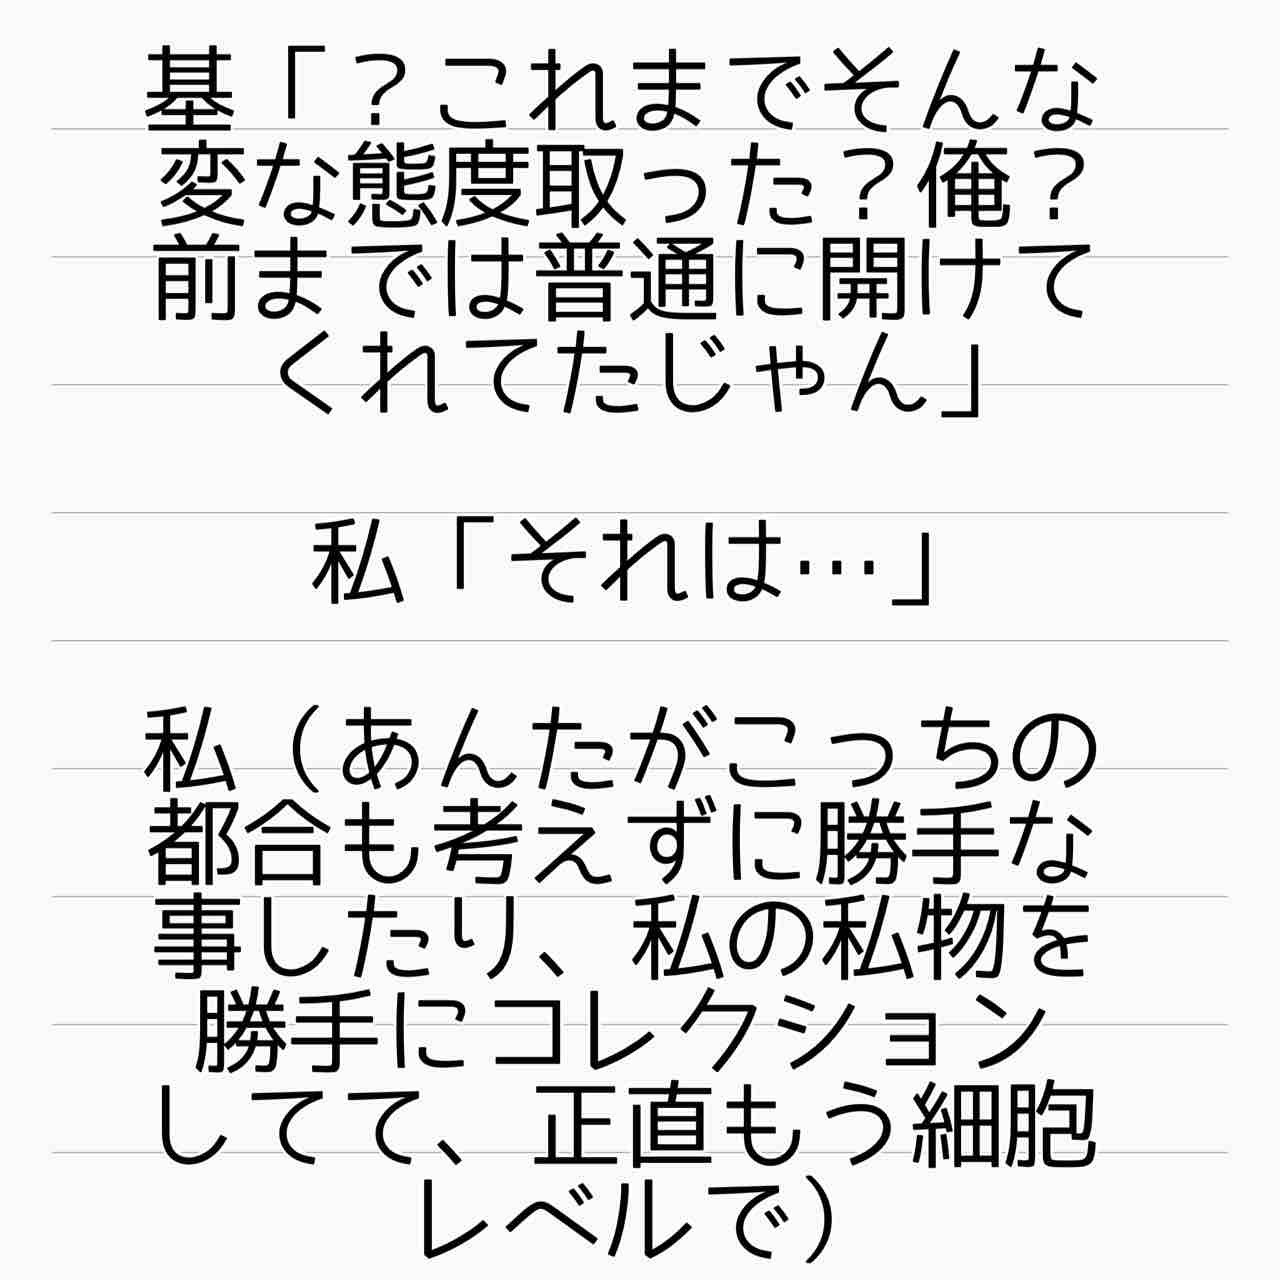 基「？これまでそんな
変な態度取った？俺？
前までは普通に開けて
くれてたじゃん」
私「それは…」
私（あんたがこっちの
都合も考えずに勝手な
事したり、私の私物を
勝手にコレクション
してて、正直もう細胞
レベルで）